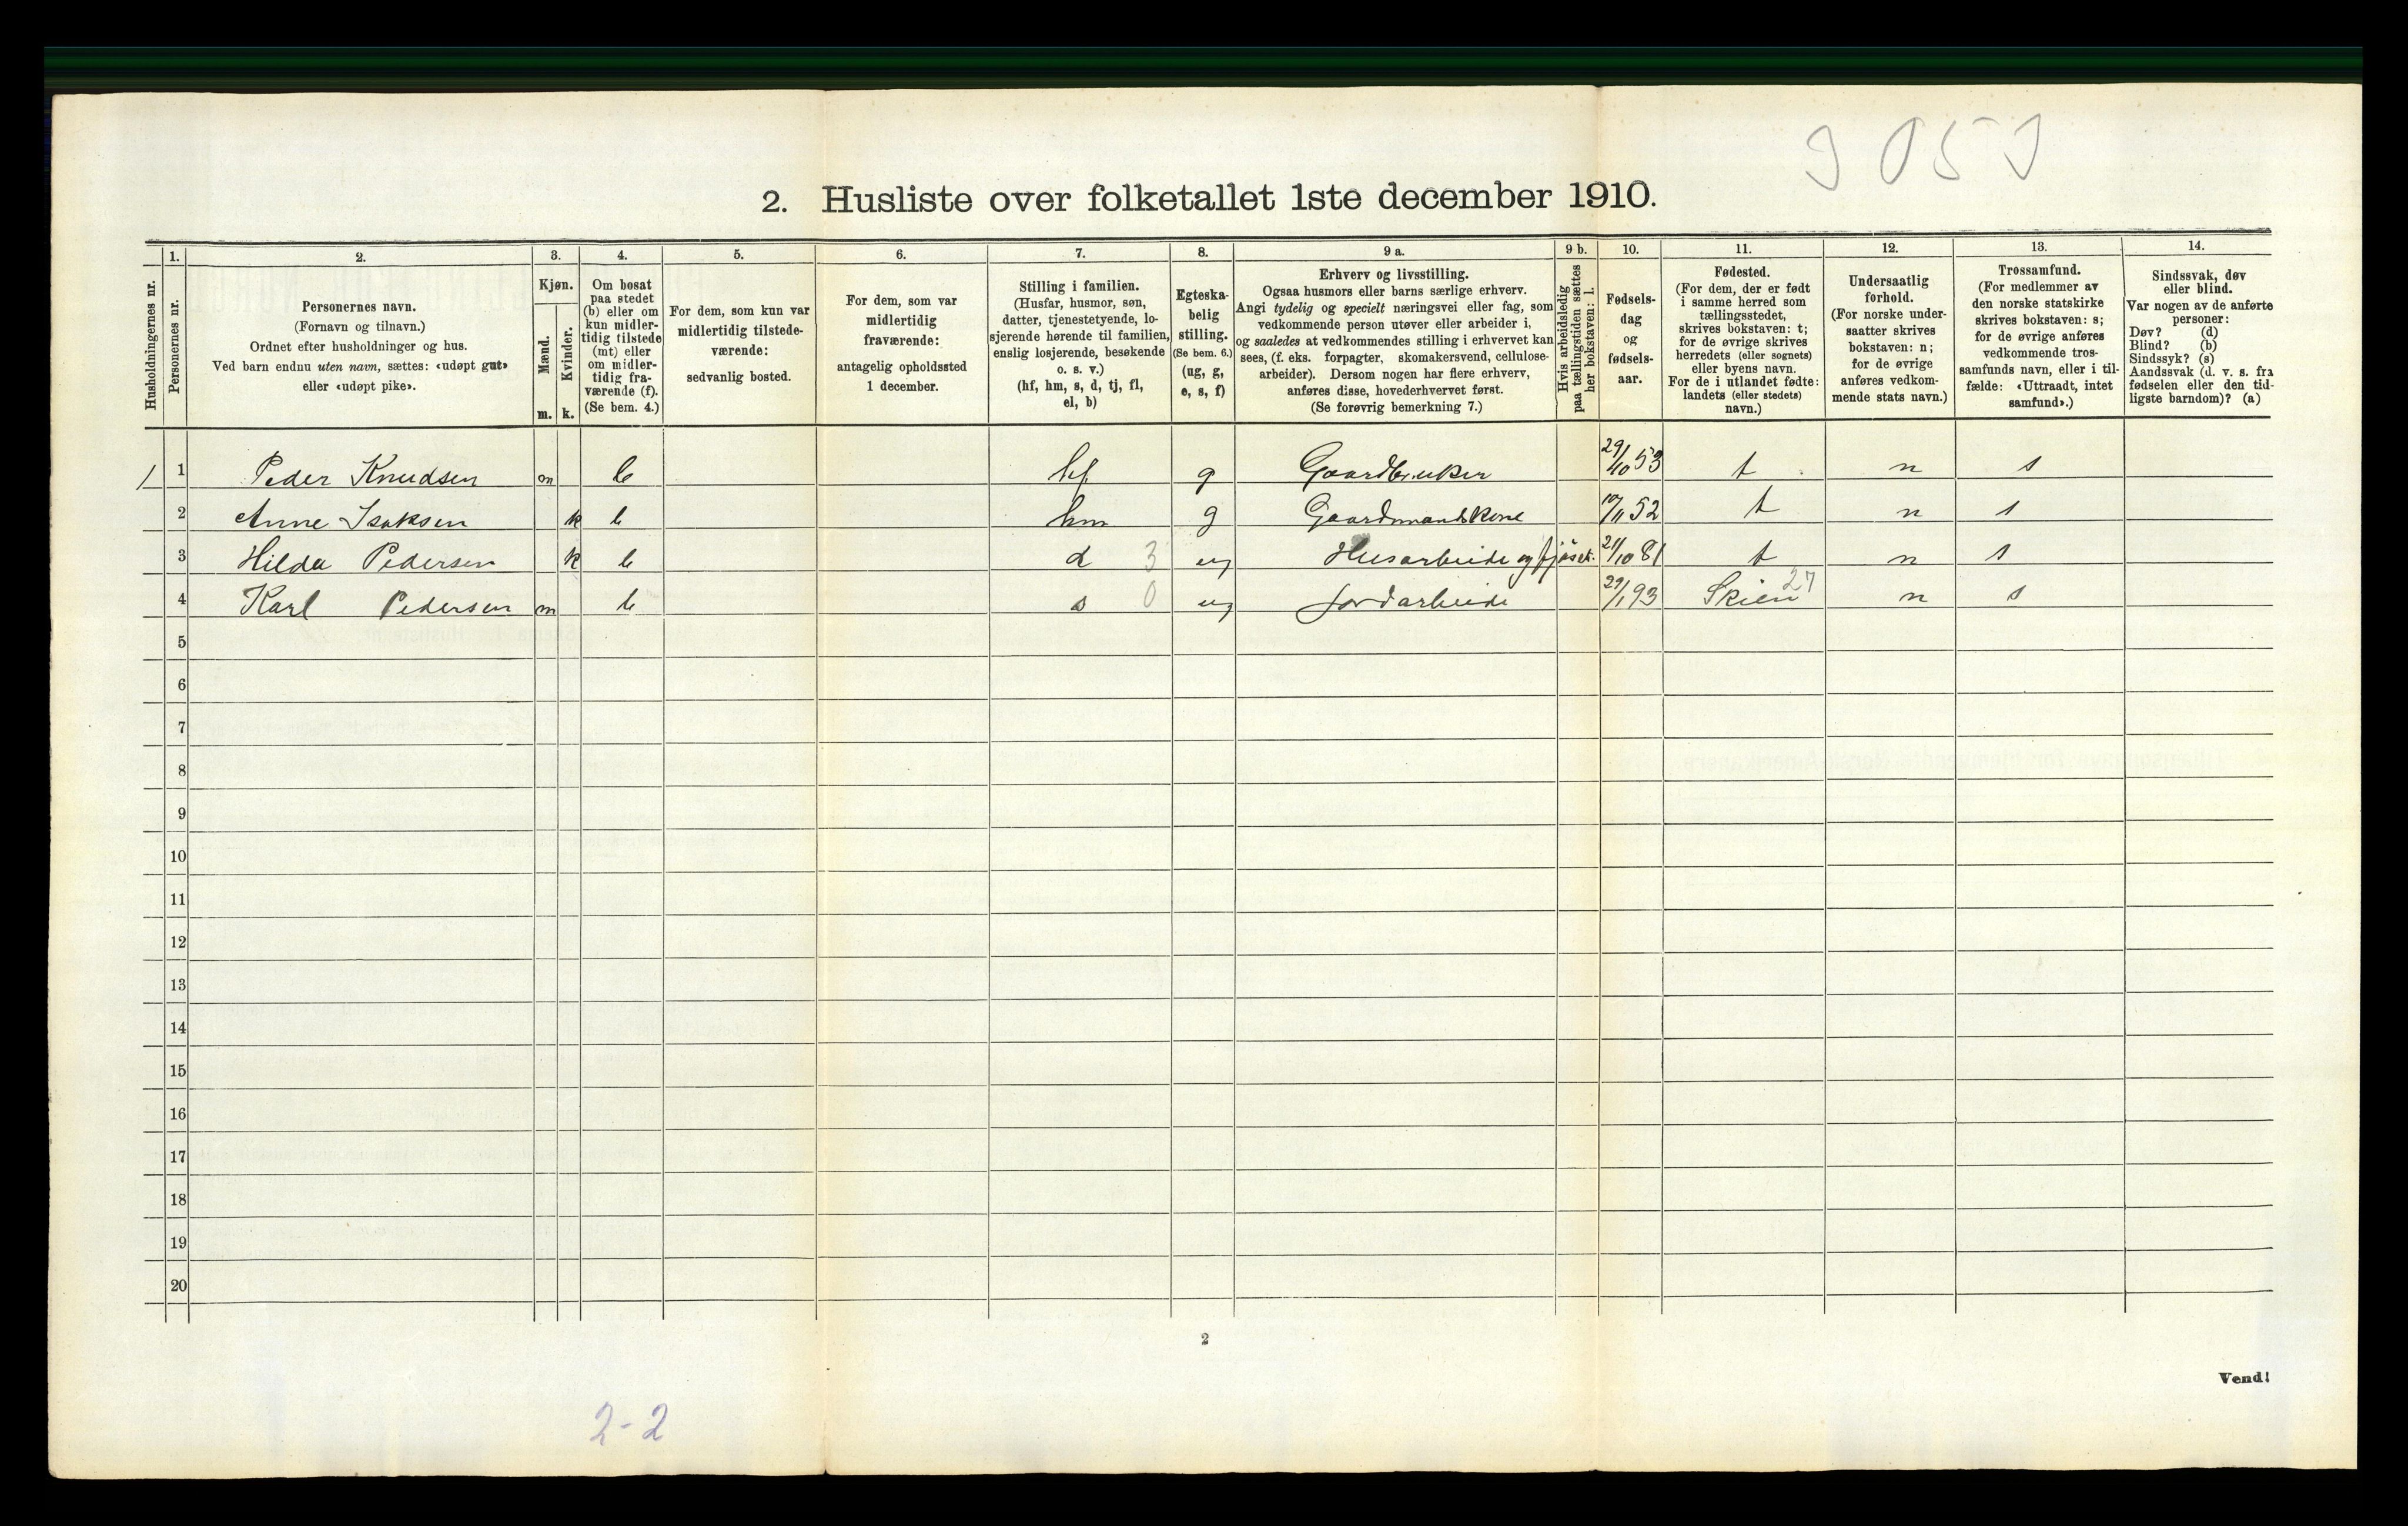 9053
2. Husliste over folketallet 1ste december 1910.
Husholdningernes nr.
1.
Personernes nr.
2.
Personernes navn.
(Fornavn og tilnavn.)
Ordnet efter husholdninger og hus.
Ved barn endnu uten navn, sættes: «udøpt gut»
eller «udøpt pike».
3.
Kjøn.
Mænd.
m.
Kvinder.
k.
4.
Om bosat
paa stedet
(b) eller om
kun midler-
tidig tilstede
(mt) eller
om midler-
tidig fra-
værende (f).
(Se bem. 4.)
5.
For dem, som kun var
midlertidig tilstede-
værende:
sedvanlig bosted.
6.
For dem, som var
midlertidig
fraværende:
antagelig opholdssted
1 december.
7.
Stilling i familien.
(Husfar, husmor, søn,
datter, tjenestetyende, lo-
sjerende hørende til familien,
enslig losjerende, besøkende
o. s. v.)
(hf, hm, s, d, tj, fl,
el, b)
8.
Egteska-
belig
stilling.
(Se bem. 6.)
(ug, g,
e, s, f)
9 a.
Erhverv og livsstilling.
Ogsaa husmors eller barns særlige erhverv.
Angi tydelig og specielt næringsvei eller fag, som
vedkommende person utøver eller arbeider i,
og saaledes at vedkommendes stilling i erhvervet kan
sees, (f. eks. forpagter, skomakersvend, cellulose-
arbeider). Dersom nogen har flere erhverv,
anføres disse, hovederhvervet først.
(Se forøvrig bemerkning 7.)
9 b.
Hvis arbeidsledig
paa tællingstiden sættes
her bokstaven: l.
10.
Fødsels-
dag
og
fødsels-
aar.
11.
Fødested.
(For dem, der er født
i samme herred som
tællingsstedet,
skrives bokstaven: t;
for de øvrige skrives
herredets (eller sognets)
eller byens navn.
For de i utlandet fødte:
landets (eller stedets)
navn.)
12.
Undersaatlig
forhold.
(For norske under-
saatter skrives
bokstaven: n;
for de øvrige
anføres vedkom-
mende stats navn.)
13.
Trossamfund.
(For medlemmer av
den norske statskirke
skrives bokstaven: s;
for de øvrige anføres
vedkommende tros-
samfunds navn, eller i til-
fælde: «Uttraadt, intet
samfund».)
14.
Sindssvak, døv
eller blind.
Var nogen av de anførte
personer:
Døv? (d)
Blind? (b)
Sindssyk? (s)
Aandssvak (d. v. s. fra
fødselen eller den tid-
ligste barndom)? (a)
1 1 Peder Knudsen m b hf g Gaardbruker 29/10 53 t n s
2 Anne Isaksen k b hm g Gaardmandskone 10/11 52 t n s
3 Hilda Pedersen k b d 3 ug Husarbeide og fjøset. 21/10 81 t n s
4 Karl Pedersen m b s 0 ug Jordarbeide 29/1 93 Skien 27 n s
5
6
7
8
9
10
11
12
13
14
15
16
17
18
19
20
2
Vend!
2-2